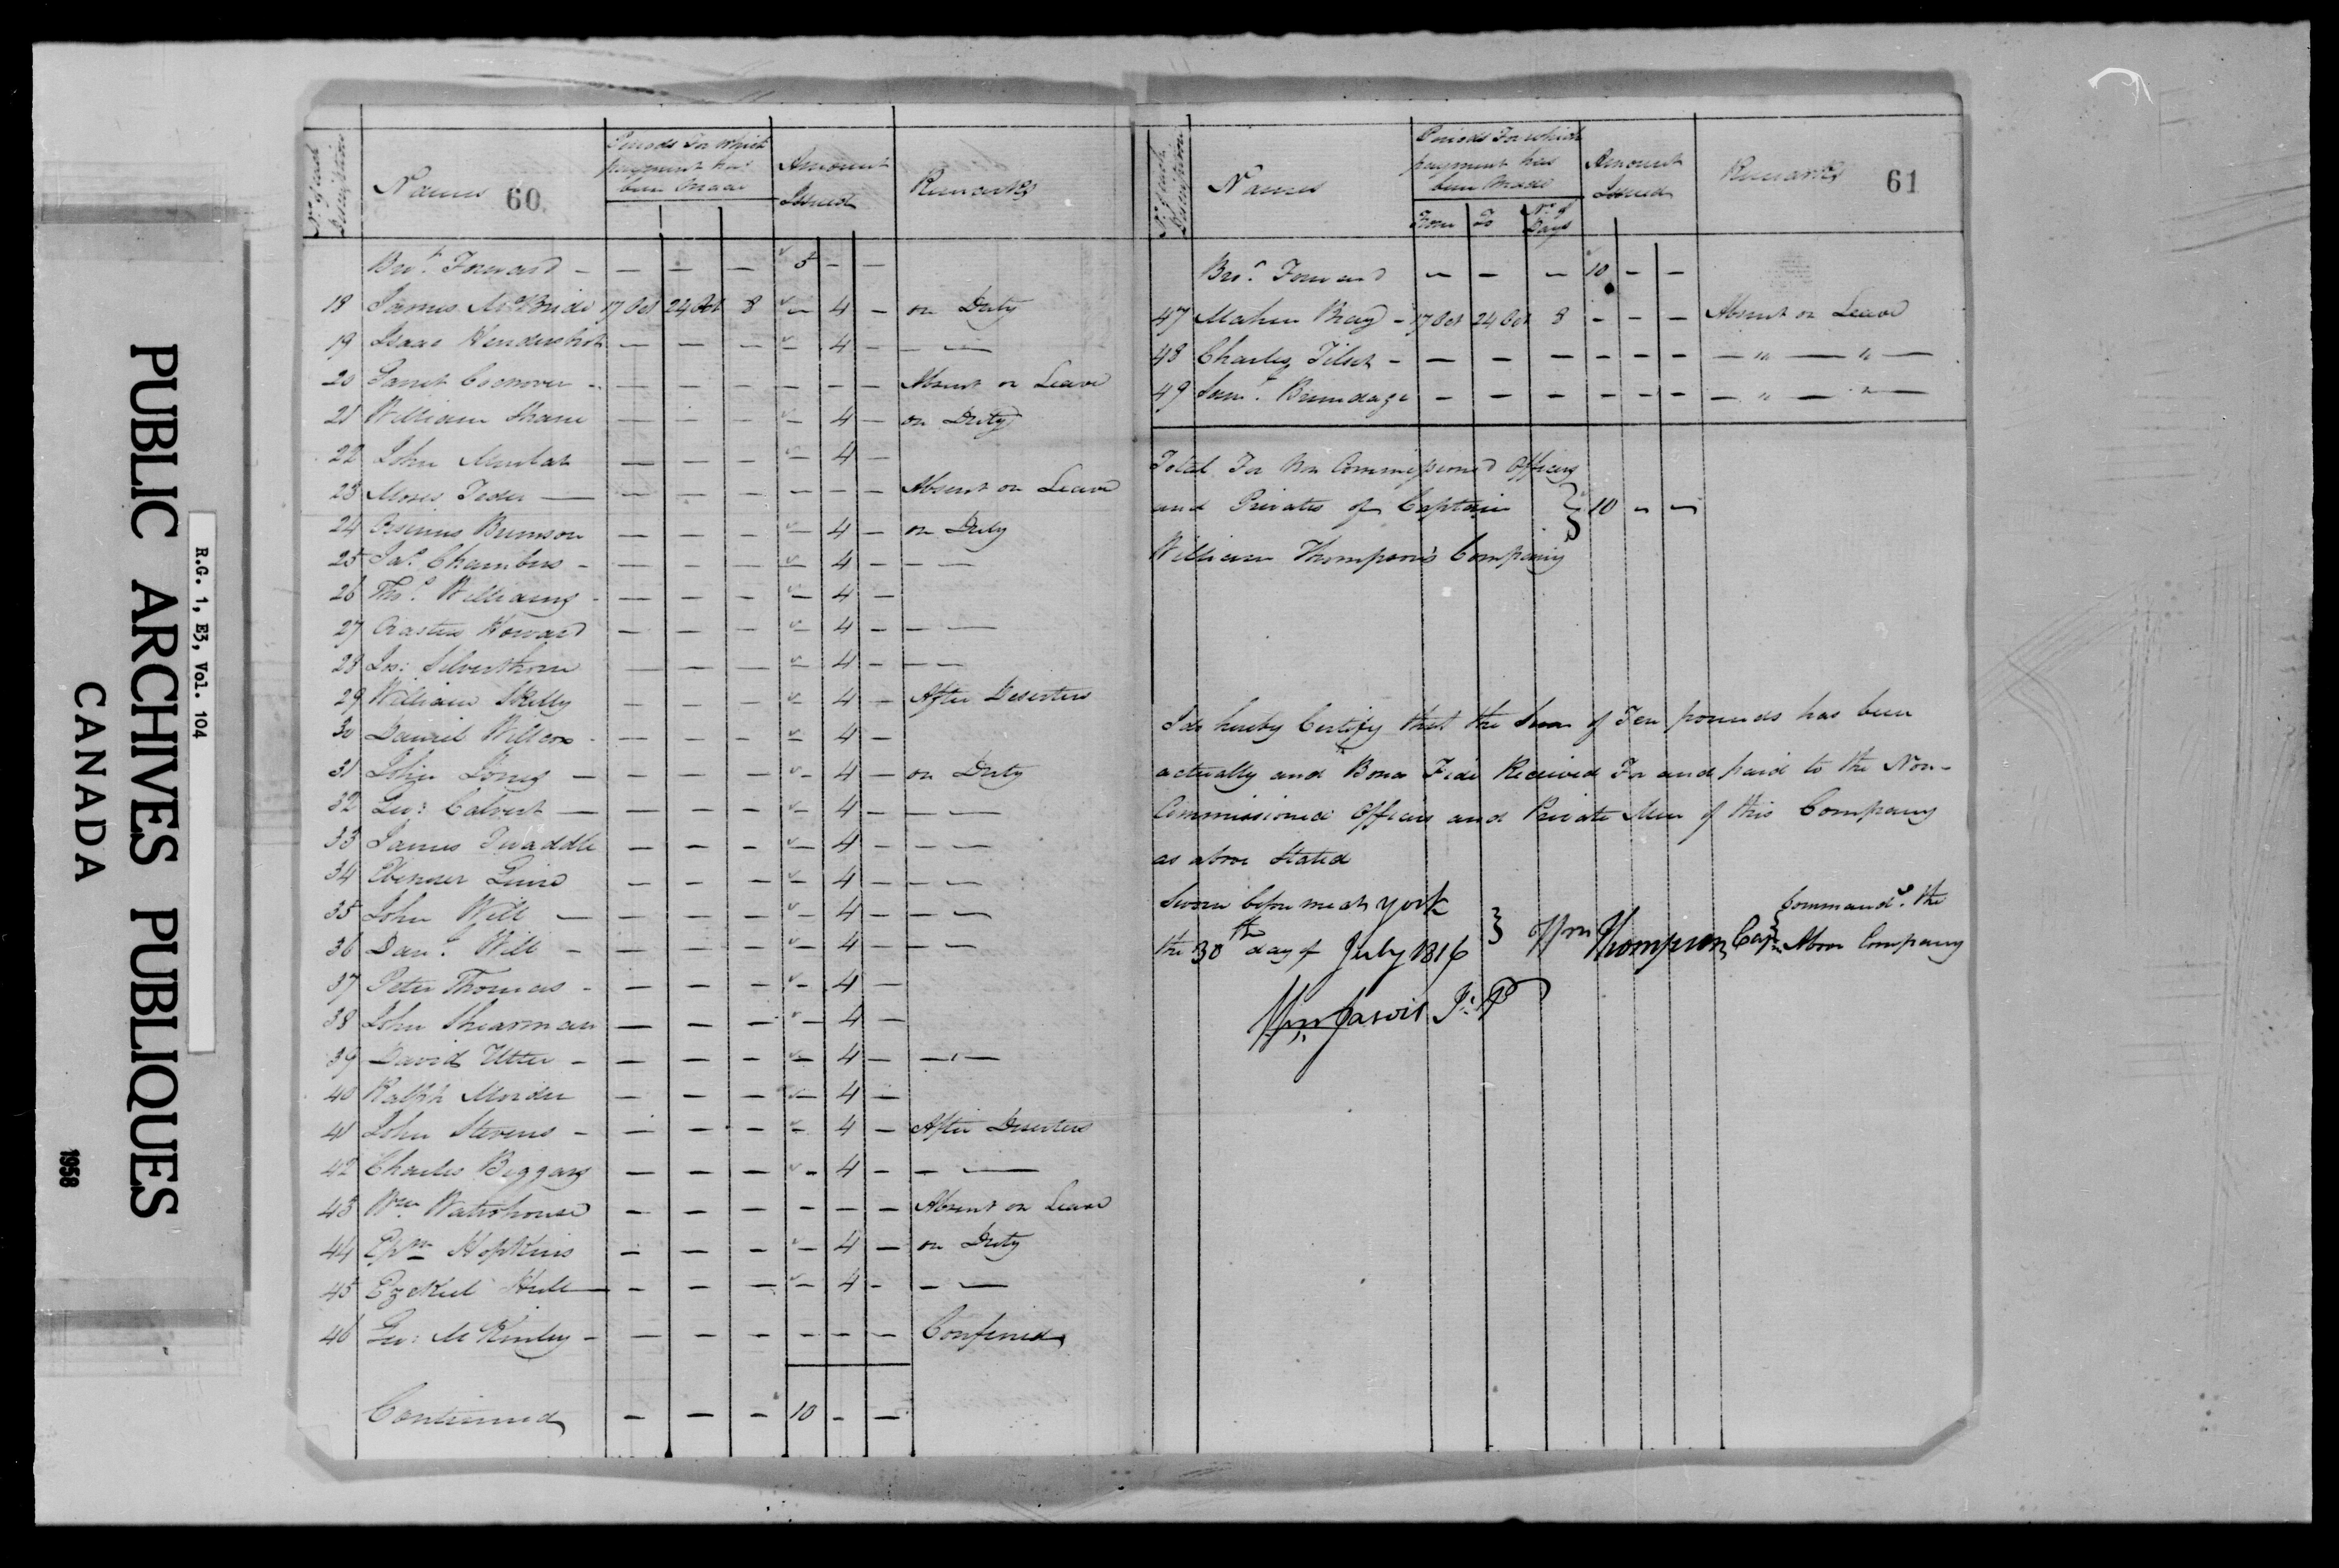 PUBLIC ARCHIVES PUBLIQUES
CANADA
R.G. 1, E3, Vol. 104
1958
No. of each Description | Names 60 | Periods For Which payment has been Made | Amount Issued | Remarks
Brot. Forward — — — — 5 — —
18 James McBride 17 Oct 24 Oct 8 — 4 — on Duty
19 Isaac Hendershot — — — — 4 — — —
20 Conover — — — — — — Absent on Leave
21 William Shane — — — — 4 — on Duty
22 John — — — — 4 —
23 Moses Teder — — — — — — Absent on Leave
24 Brunson — — — — 4 — on Duty
25 Jas. Chambers — — — — 4 — — —
26 Thos. Williams — — — — 4 —
27 Erastus Howard — — — — 4 — — —
28 Jos: Silverthorn — — — — 4 — — —
29 William Skelly — — — — 4 — After Deserters
30 Daniel Willcox — — — — 4 —
31 John Jones — — — — 4 — on Duty
32 Geo: Calvert — — — — 4 — — —
33 James Twaddle — — — — 4 — — —
34 Ebenezer — — — — 4 — — —
35 John Will — — — — 4 — — —
36 Danl. Will — — — — 4 — — —
37 Peter Thomas — — — — 4 —
38 John Shearman — — — — 4 —
39 David Utter — — — — 4 — — " —
40 Ralph Morden — — — — 4 —
41 John Stevens — — — — 4 — After Deserters
42 Charles Beggars — — — — 4 — — —
43 Wm Waterhouse — — — — — — Absent on Leave
44 Epm Hopkins — — — — 4 — on Duty
45 Ezekiel Hill — — — — 4 — — —
46 Geo: McKinley — — — — — — Confined
Continued — — — 10 — —
No. of each Description | Names | Periods For which payment has been Made | Amount Issued | Remarks 61
From | To | No. of Days
Brot. Forward — — — 10 — —
47 Mahen Bray — 17 Oct 24 Oct 8 — — — Absent on Leave
48 Charles Tilset — — — — — — — — " — " —
49 Saml. Brundage — — — — — — — " — " —
Total For Non Commissioned Officers
and Privates of Captain } 10 — —
William Thompson's Company
I do hereby Certify that the Sum of Ten pounds has been
actually and Bona Fide Received For and paid to the Non-
Commissioned Officers and Private Men of this Company
as above Stated
Sworn before me at York
the 30th day of July 1816 } Wm Thompson Capt } Commandg. the
Above Company
Wm Jarvis J: P